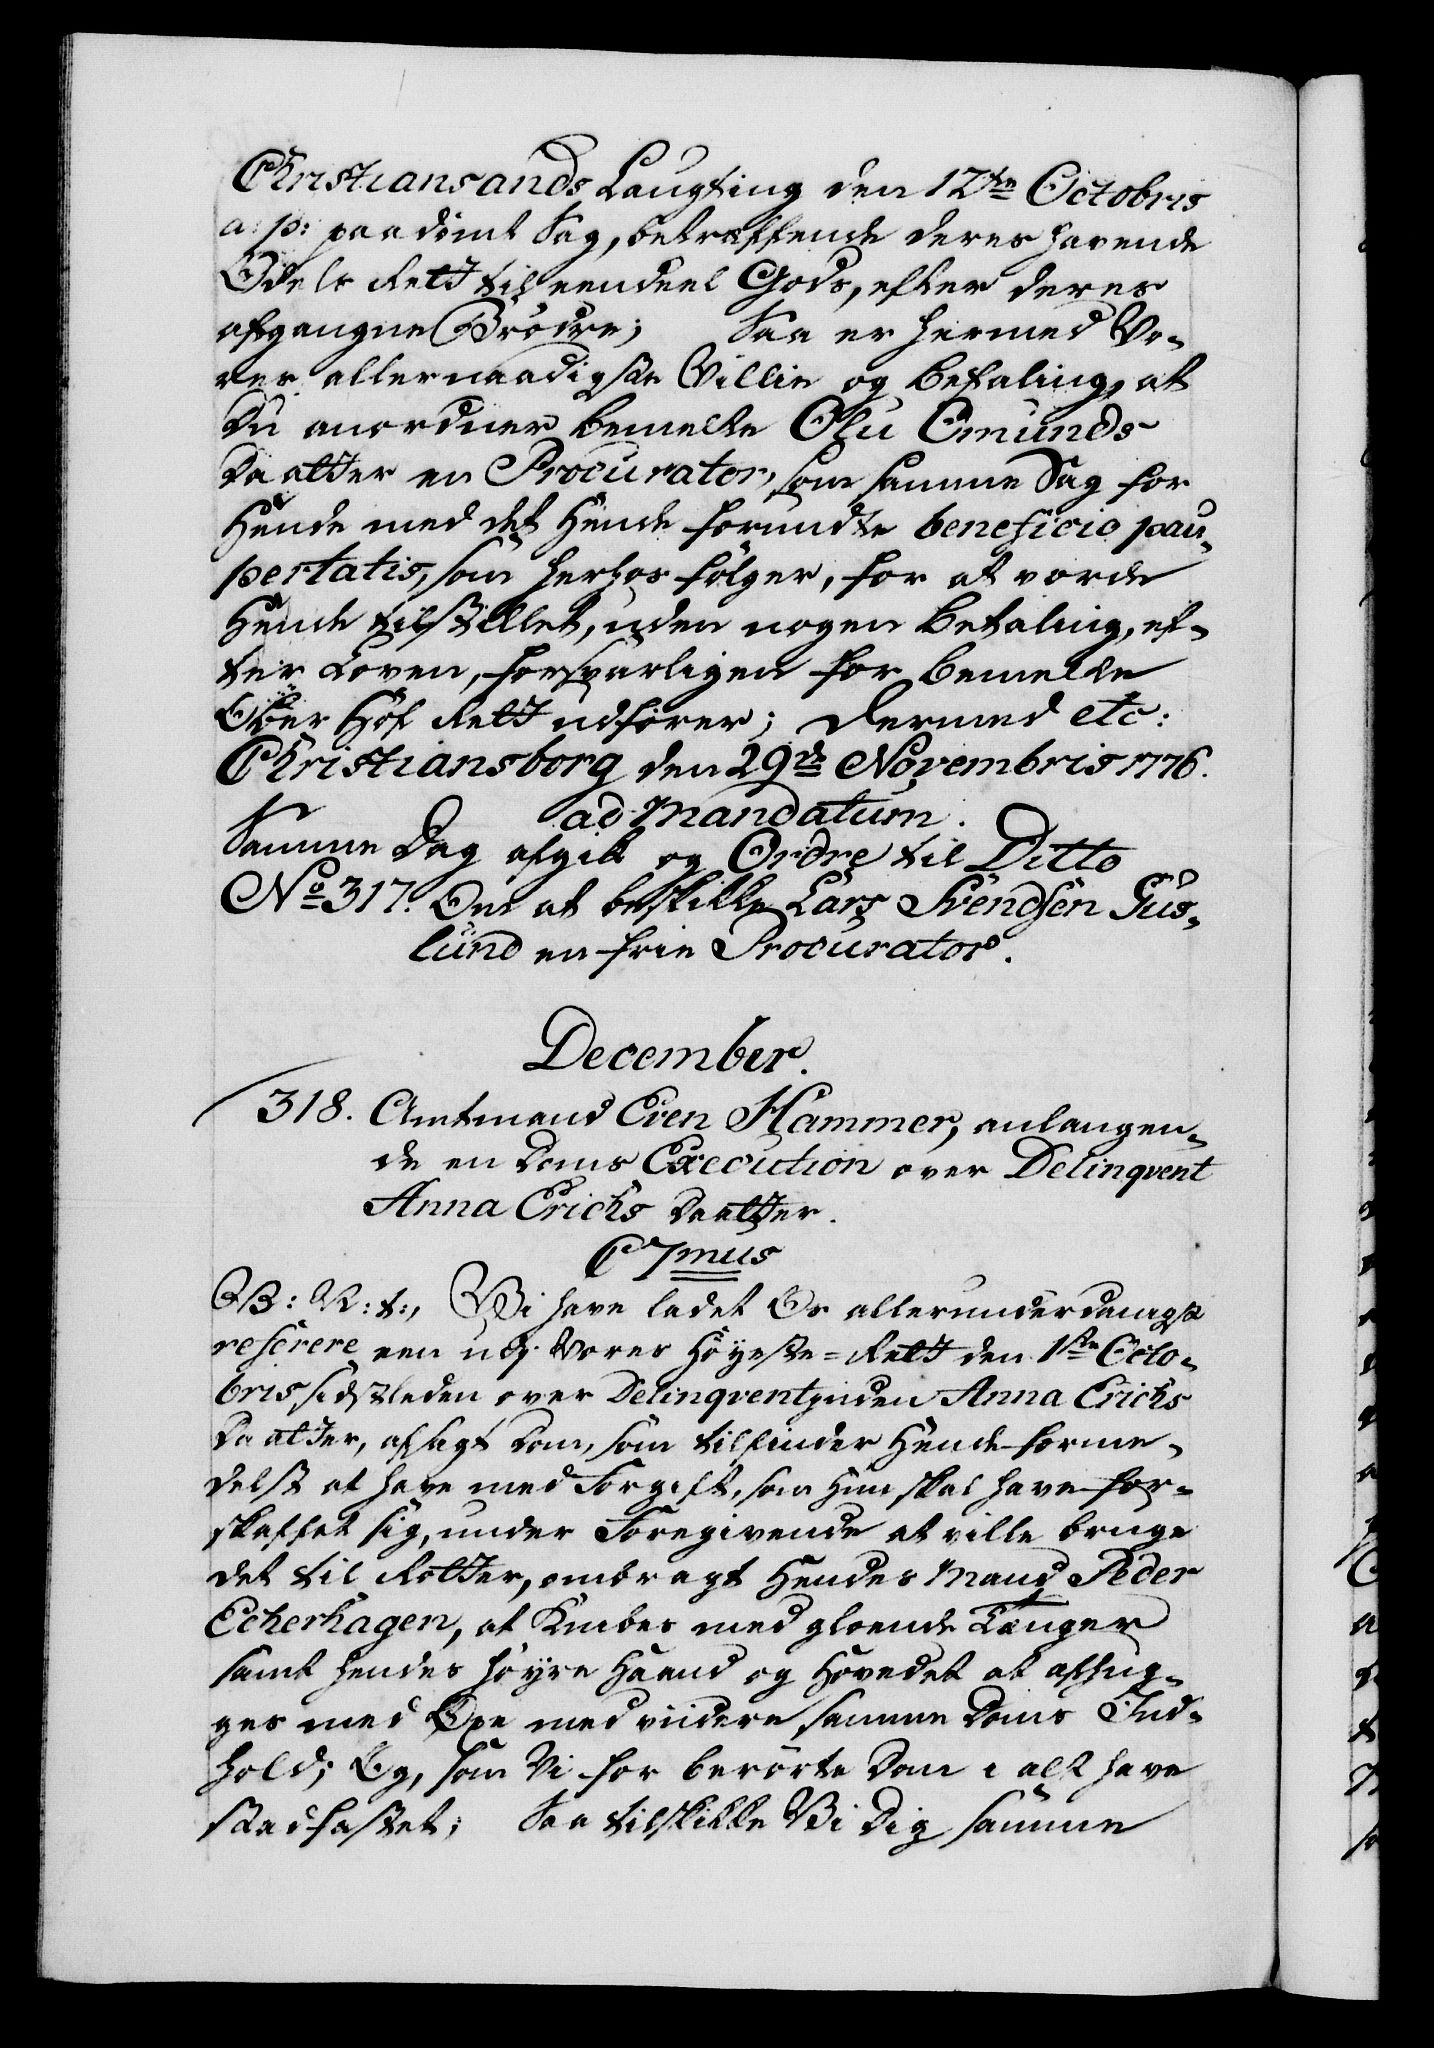 Christiansands Laugting den 12te Octobris
a: p: paadömt Sag, betræffende deres havende
Odels Rett til eendeel Gods, efter deres
afgangne Brödre; Saa er hermed Vo-
res allernaadigste Villie og Befaling, at
Du anordner bemelte Olu Omunds
Daatter en Procurator, som samme Sag for
Hende med det Hende forundte beneficio pau-
pertatis, som herhos fölger, for at vorde
Hende tilstillet, uden nogen Betaling, ef-
ter Loven, forsvarligen for bemelte
Ober Hof Rett udförer; Dermed etc:
Christiansborg den 29de Novembris 1776.
ad Mandatum.
Samme Dag afgik og Ordre til Ditto
No 317. Om at beskikke Lars Svendsen Gus-
lund en frie Procurator.
December.
318. Amtmand Even Hammer, anlangen-
de en Doms Execution over Delinqvent
Anna Erichs Daatter.
C 7mus
B: R: t:, Vi have ladet Os allerunderdanigst
referere een udj Vores Höyeste-Rett den 1ste Octo-
bris sidstleden over Delinqventinden Anna Erichs
Daatter, afsagt Dom, som tilfinder Hende forme-
delst at have med Forgift, som Hun skal have for-
skaffet sig, under Foregivende at ville bruge
det til Rotter, ombragt Hendes Mand Peder
Echerhagen, at Knibes med gloende Tænger
samt hendes höyre Haand og Hovedet at afhug-
ges med Öxe med viidere samme Doms Ind-
hold; Og, som Vi for berörte Dom i alt have
stadfæstet; Saa tilskikke Vi Dig samme